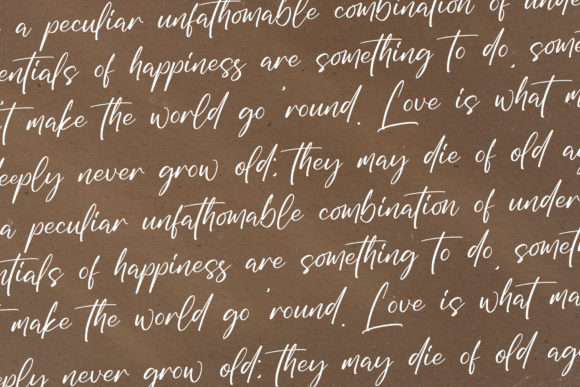 a peculiar unfathomable combination of under
entials of happiness are something to do, some
't make the world go 'round. Love is what m
deeply never grow old; they may die of old ag
a peculiar unfathomable combination of under
ntials of happiness are something to do, someth
t make the world go 'round. Love is what ma
eeply never grow old; they may die of old age